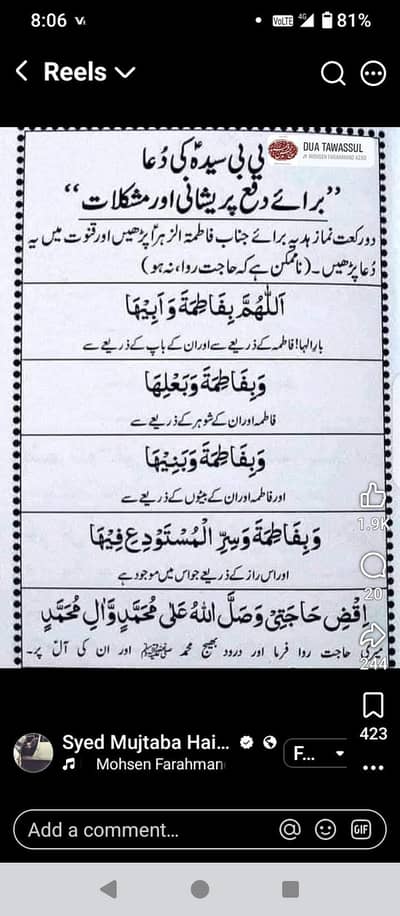 8:06
VoLTE 4G 81%
Reels
DUA TAWASSUL
MOHSEN FARAHMAND AZAD
بی بی سیدہؑ کی دُعا
”برائے دفع پریشانی اور مشکلات“
دو رکعت نماز ہدیہ برائے جناب فاطمۃ الزہراؑ پڑھیں اور قنوت میں یہ
دُعا پڑھیں۔ (ناممکن ہے کہ حاجت روا، نہ ہو)
اَللّٰهُمَّ بِفَاطِمَةَ وَاَبِيْهَا
بارالہا! فاطمہ کے ذریعے سے اور ان کے باپ کے ذریعے سے
وَبِفَاطِمَةَ وَبَعْلِهَا
فاطمہ اور ان کے شوہر کے ذریعے سے
وَبِفَاطِمَةَ وَبَنِيْهَا
اور فاطمہ اور ان کے بیٹوں کے ذریعے سے
وَبِفَاطِمَةَ وَسِرِّ الْمُسْتَوْدِعِ فِيْهَا
اور اس راز کے ذریعے جو اس میں موجود ہے
اِقْضِ حَاجَتِيْ وَصَلَّ اللهُ عَلٰى مُحَمَّدٍ وَّاٰلِ مُحَمَّدٍ
میری حاجت روا فرما اور درود بھیج محمد ﷺ اور ان کی آل پر۔
1.9K
20
244
423
Syed Mujtaba Hai...
F...
Mohsen Farahman
Add a comment...
GIF